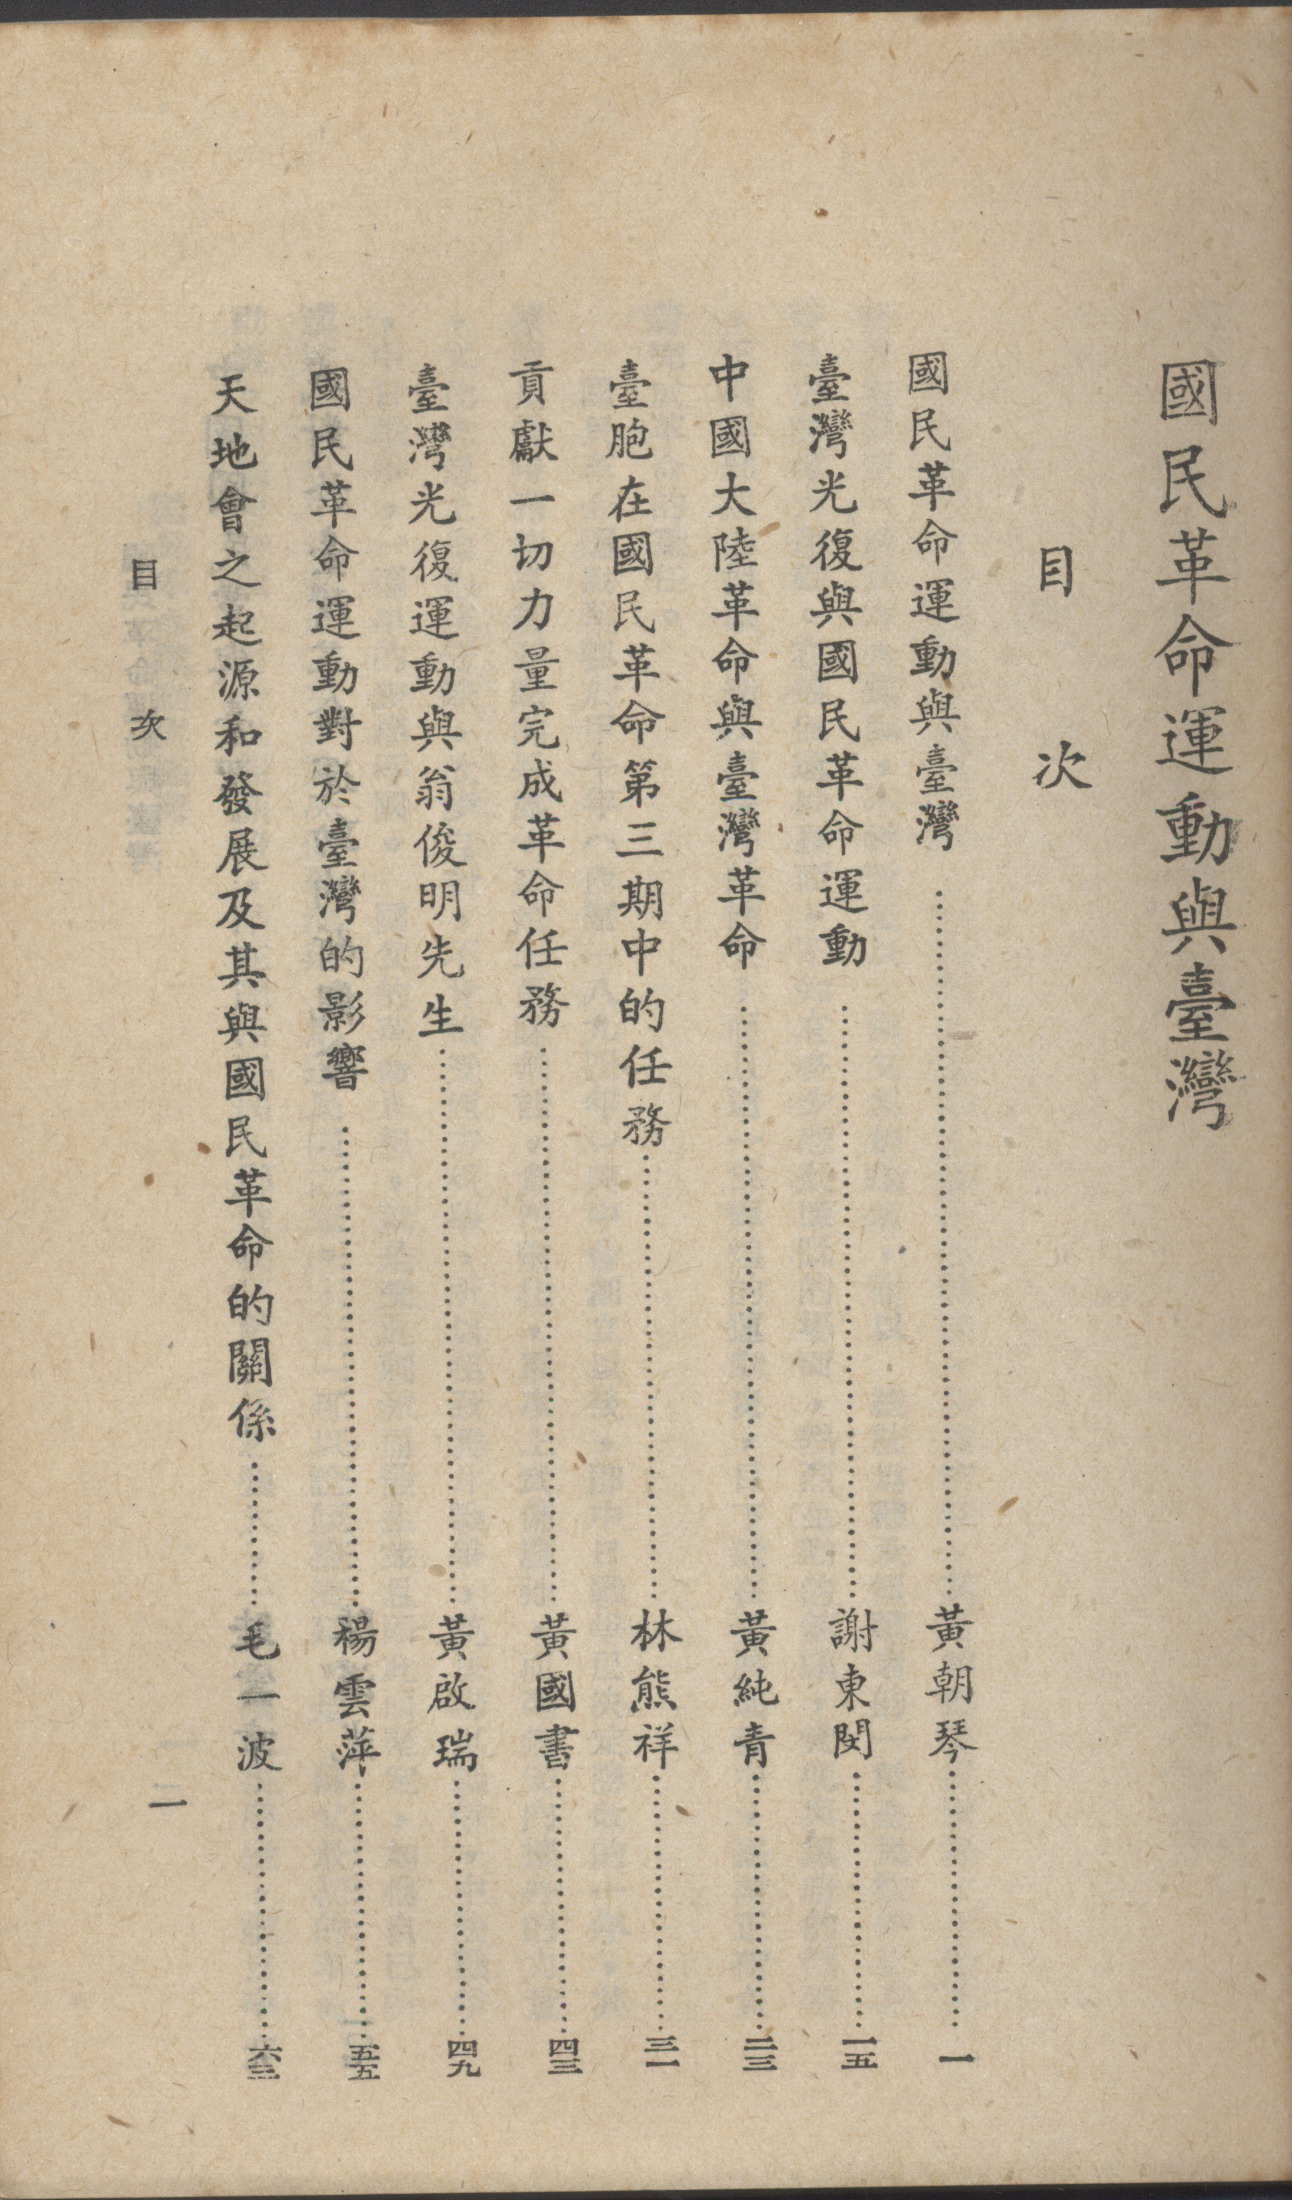 國民革命運動與臺灣
目次
國民革命運動與臺灣……黃朝琴……一
臺灣光復與國民革命運動……謝東閔……一五
中國大陸革命與臺灣革命……黃純青……二三
臺胞在國民革命第三期中的任務……林熊祥……三一
貢獻一切力量完成革命任務……黃國書……四三
臺灣光復運動與翁俊明先生……黃啟瑞……四九
國民革命運動對於臺灣的影響……楊雲萍……五五
天地會之起源和發展及其與國民革命的關係……毛一波……六三
目次 一